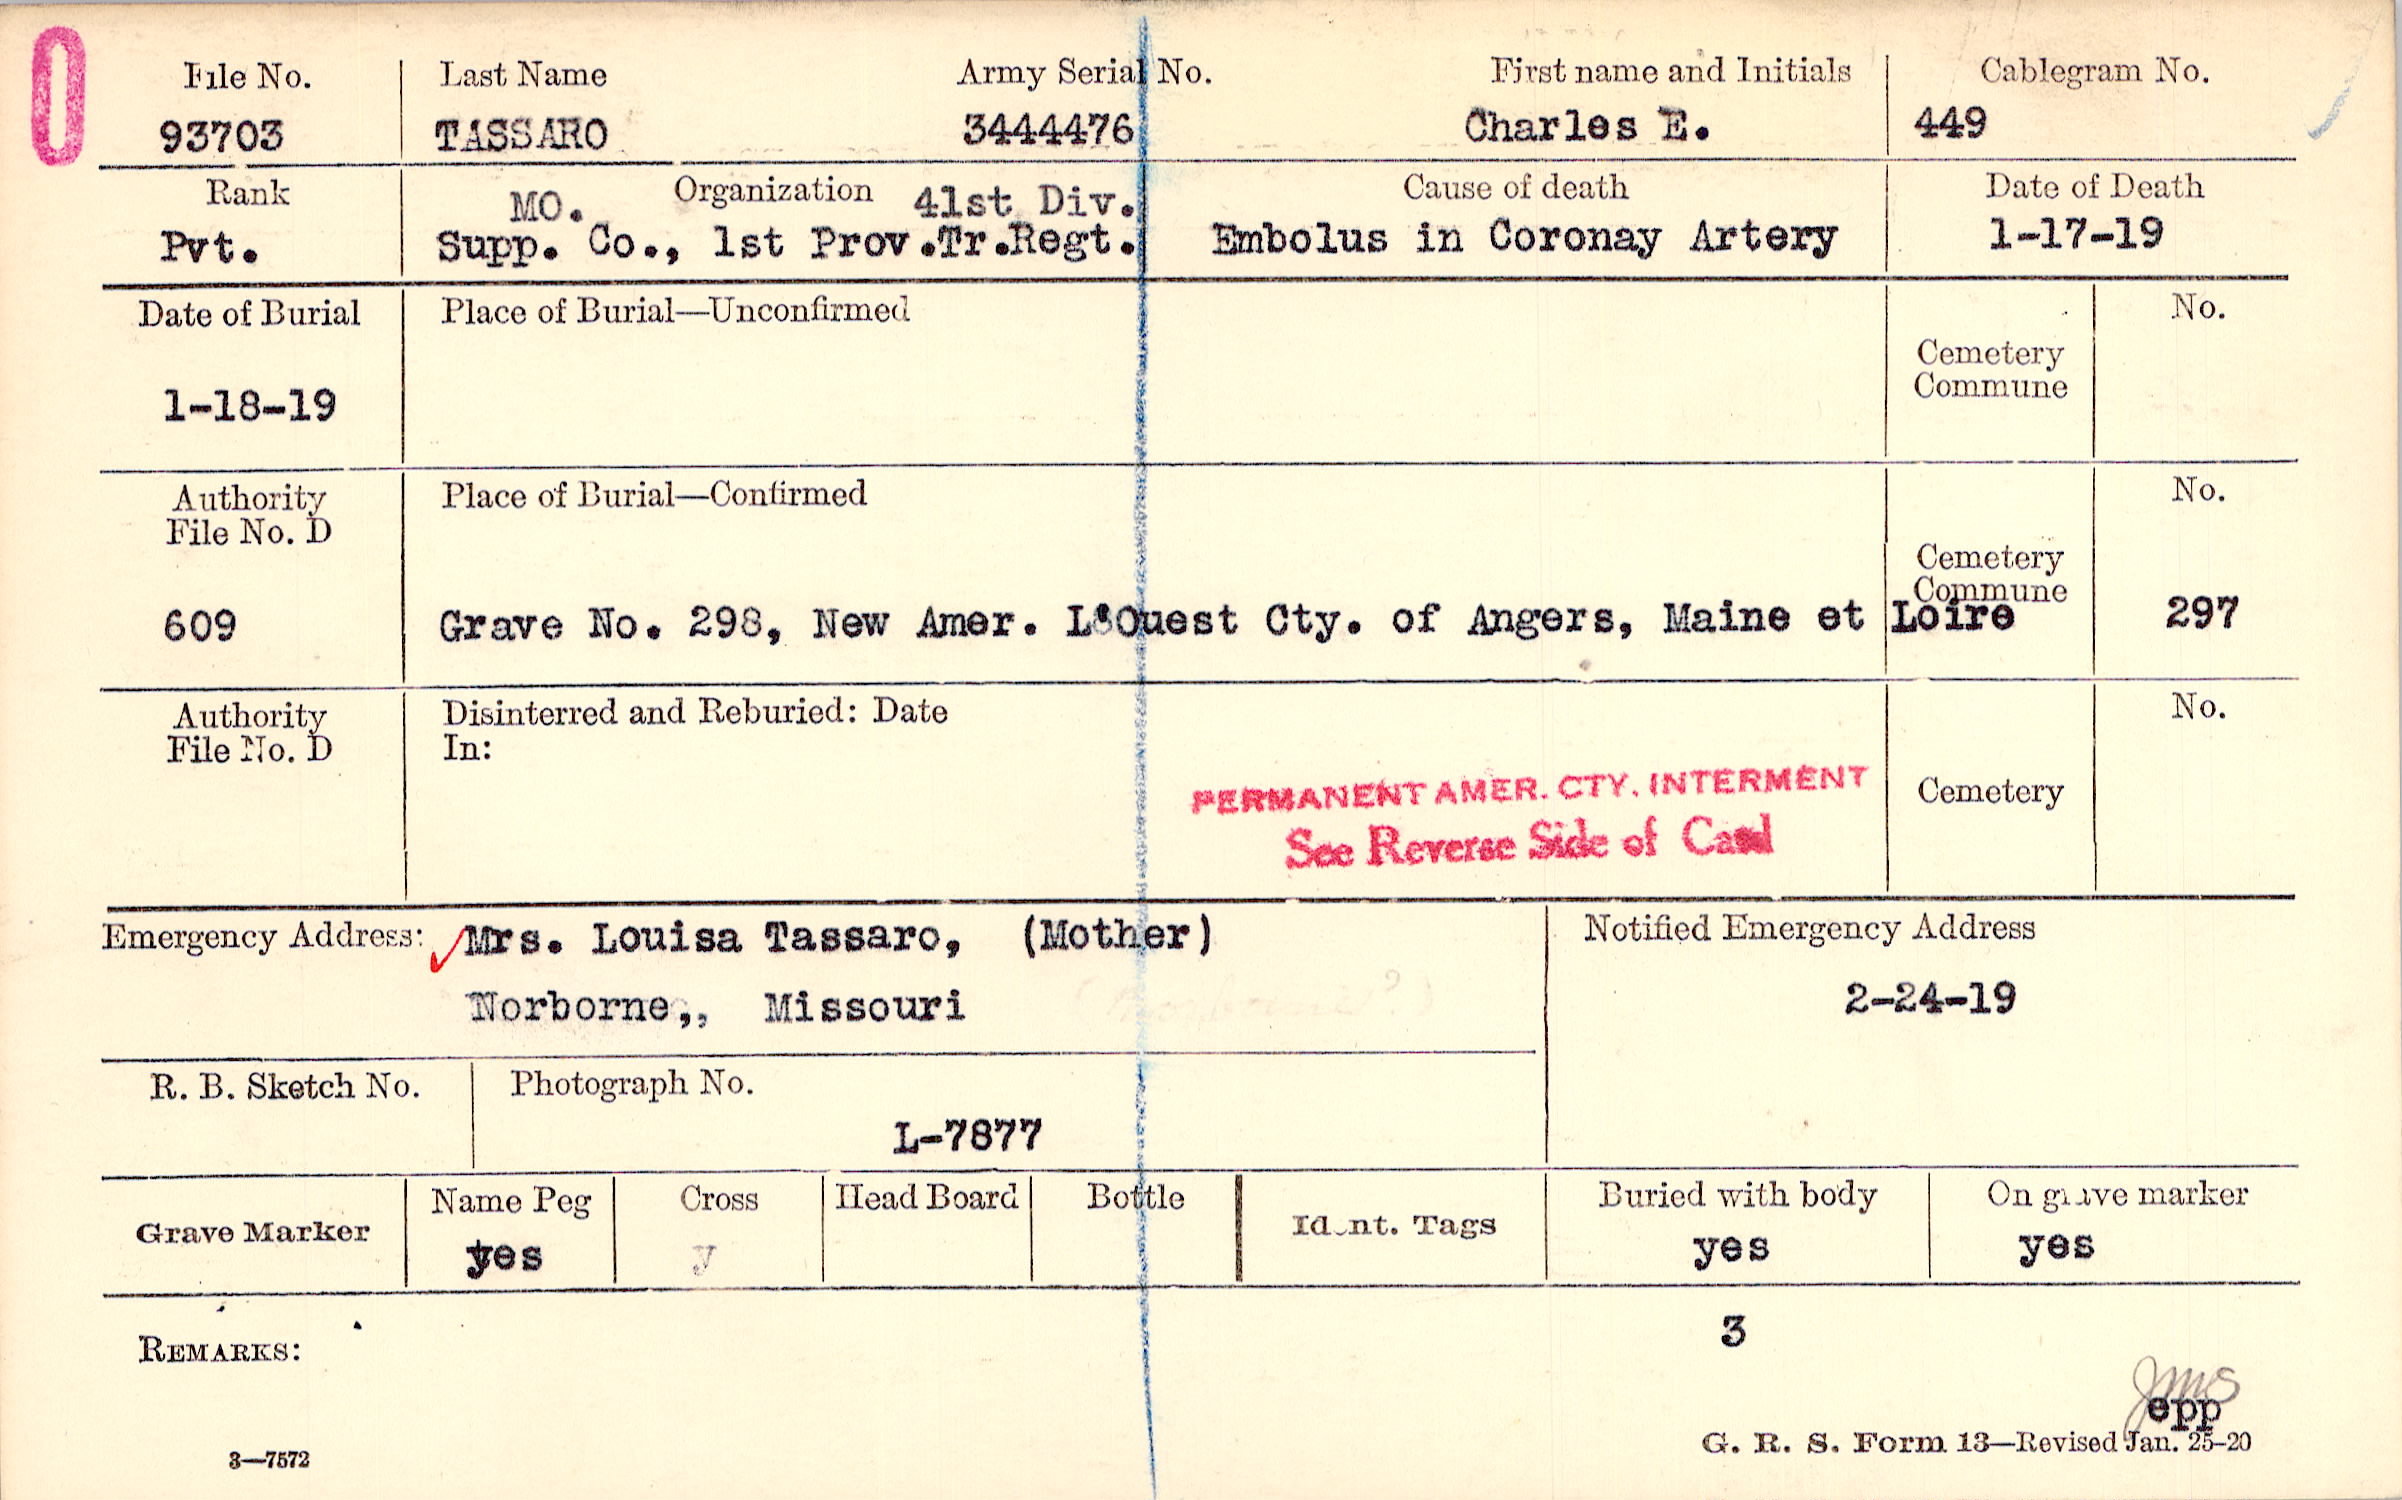 0
File No. Last Name Army Serial No. First name and Initials Cablegram No.
93703 TASSARO 3444476 Charles E. 449
Rank MO. Organization 41st Div. Cause of death Date of Death
Pvt. Supp. Co., 1st Prov.Tr.Regt. Embolus in Coronay Artery 1-17-19
Date of Burial Place of Burial—Unconfirmed No.
Cemetery
Commune
1-18-19
Authority Place of Burial—Confirmed No.
File No. D
Cemetery
Commune
609 Grave No. 298, New Amer. L'Ouest Cty. of Angers, Maine et Loire 297
Authority Disinterred and Reburied: Date No.
File No. D In:
PERMANENT AMER. CTY. INTERMENT
Cemetery
See Reverse Side of Card
Emergency Address: Mrs. Louisa Tassaro, (Mother) Notified Emergency Address
Norborne,, Missouri 2-24-19
R. B. Sketch No. Photograph No.
L-7877
Grave Marker Name Peg Cross Head Board Bottle Ident. Tags Buried with body On grave marker
yes y yes yes
3
REMARKS:
JMS
epp
G. R. S. Form 13—Revised Jan. 25-20
3—7572